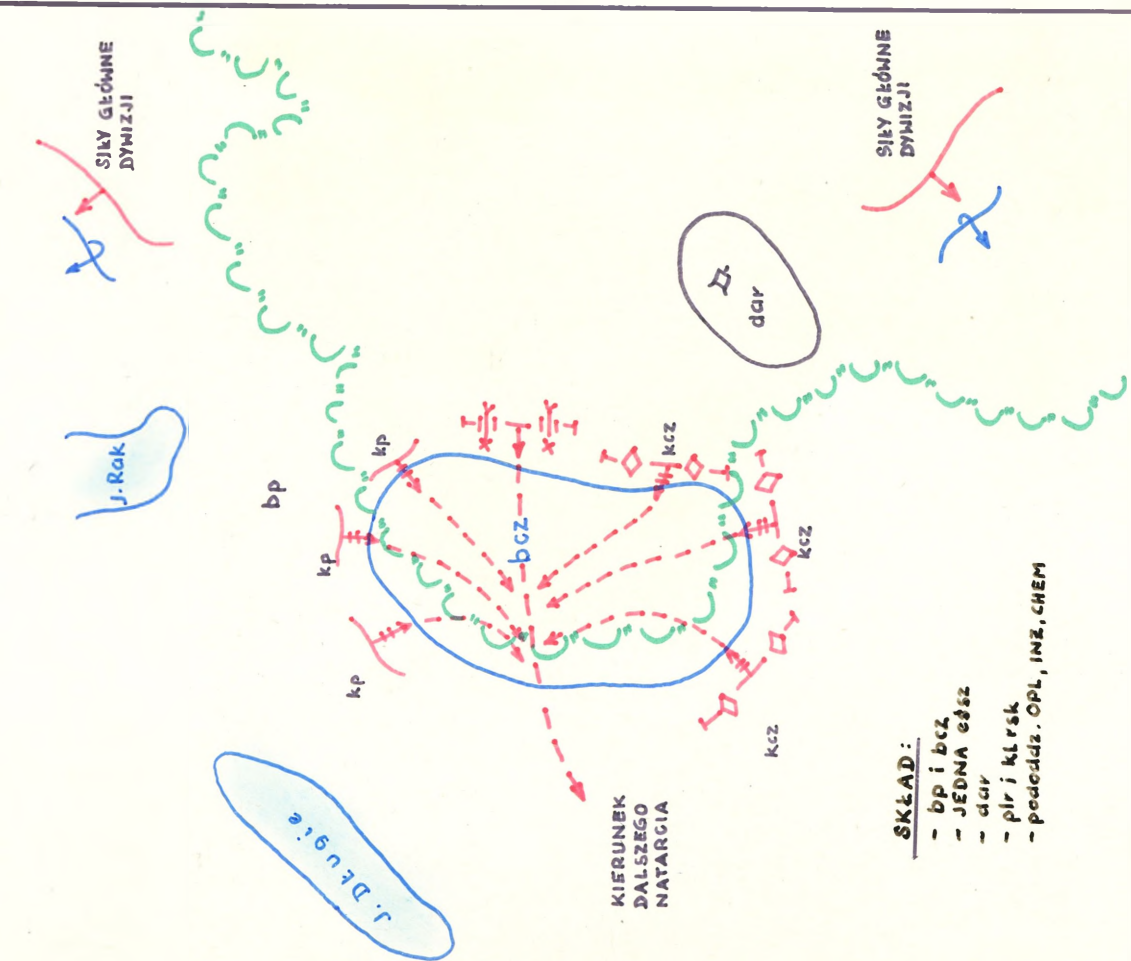 SIŁY GŁÓWNE
DYWIZJI
SIŁY GŁÓWNE
DYWIZJI
J. Rak
bp
kp
kp
kp
bcz
kcz
kcz
kcz
dar
J. Długie
KIERUNEK
DALSZEGO
NATARCIA
SKŁAD:
- bp i bcz
- JEDNA
- dar
- plr i kl rsk
- pododdz. OPL, INŻ, CHEM